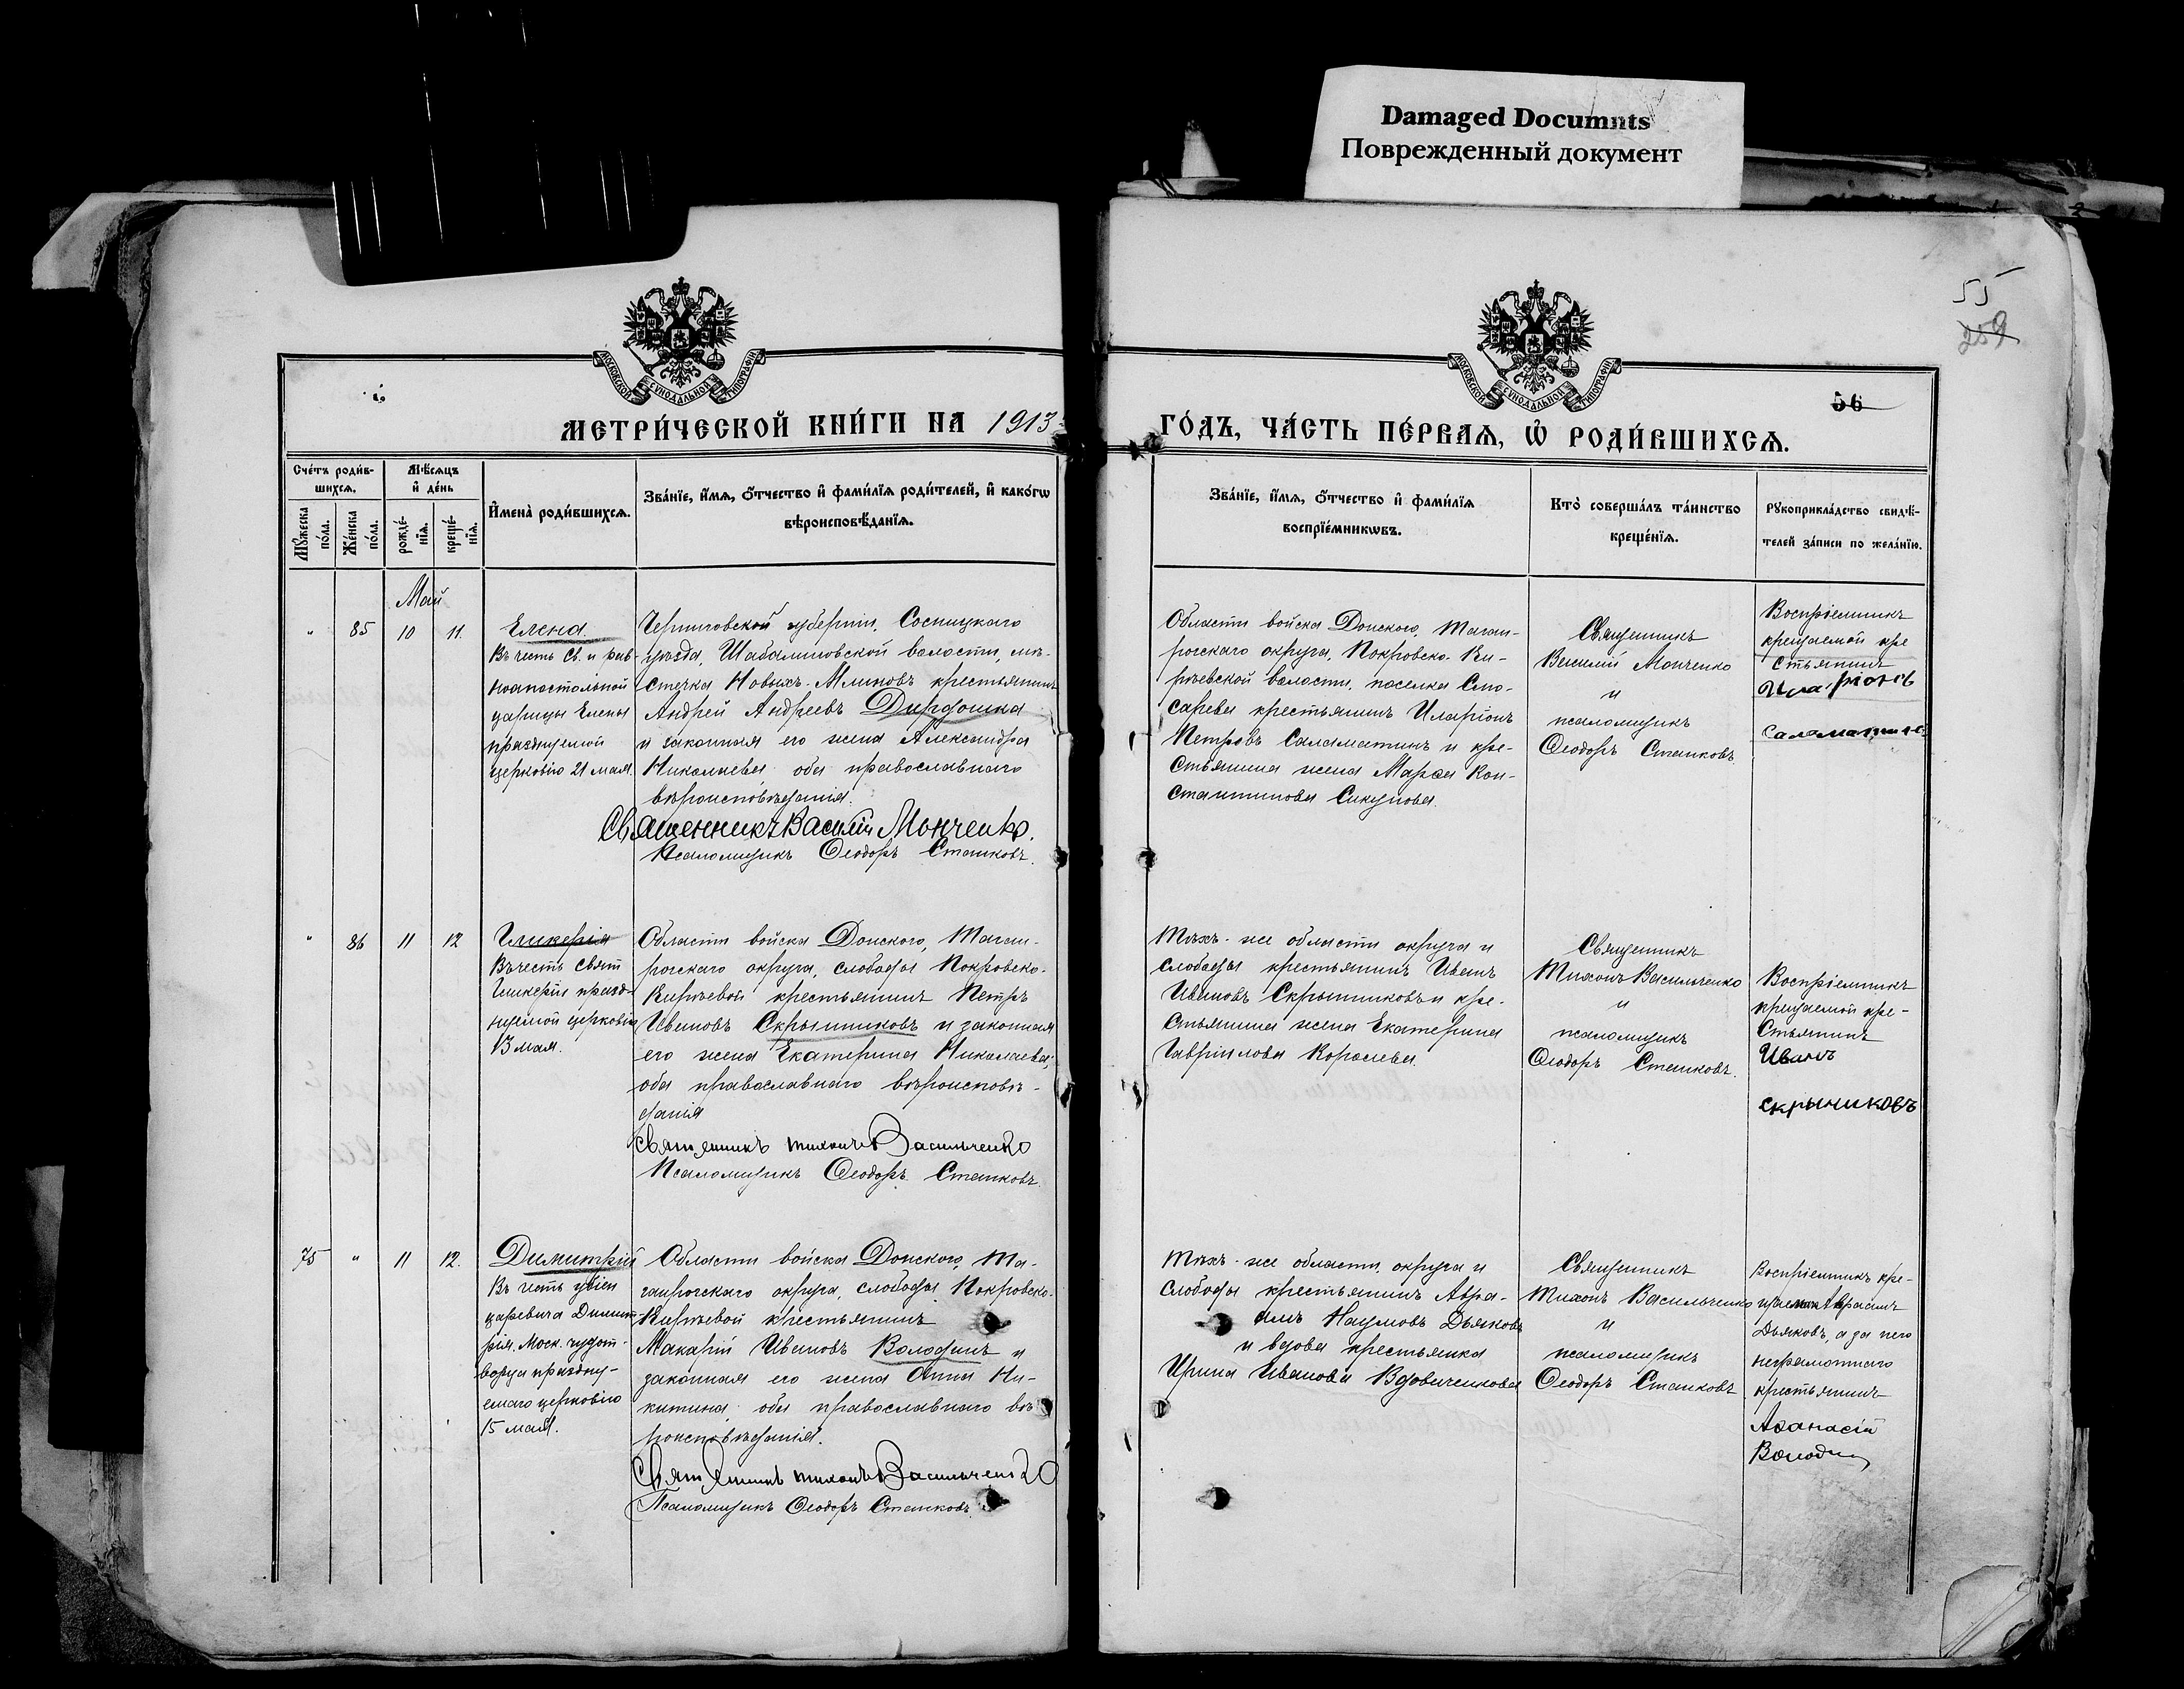 Damaged Documnts
Поврежденный документ
55
259
56
МОСКОВСКОЙ СѴНОДАЛЬНОЙ ТИПОГРАФІИ
МОСКОВСКОЙ СѴНОДАЛЬНОЙ ТИПОГРАФІИ
МЕТРИ́ЧЕСКОЙ КНИ́ГИ НА 1913
ГО́ДЪ, ЧА́СТЬ ПЕ́РВАѦ, Ѡ҆ РОДИ́ВШИХСѦ.
Сче́тъ роди́в-
шихсѧ.
Мꙋ́жеска
по́ла.
Же́нска
по́ла.
Мѣ́сѧцъ
и҆ де́нь
рожде́-
нїѧ.
креще́-
нїѧ.
И҆мена̀ роди́вшихсѧ.
Зва́нїе, и҆́мѧ, ѻ҆́тчество и҆ фами́лїѧ роди́телей, и҆ како́гѡ
вѣроисповѣ́данїѧ.
Зва́нїе, и҆́мѧ, ѻ҆́тчество и҆ фами́лїѧ
воспрїе́мникѡвъ.
Кто̀ соверша́лъ та́инство
креще́нїѧ.
Рꙋкоприкла́дство свидѣ́-
телей за́писи по жела́нїю.
Май
"
85
10
11.
Елена.
Въ честь Св. и рав-
ноапостольной
царицы Елены
празднуемой
церковію 21 мая.
Черниговской губерніи, Сосницкаго
уѣзда, Шабалиновской волости, мѣ-
стечка Новыхъ-Млиновъ крестьянинъ
Андрей Андреевъ Дирдошка
и законная его жена Александра
Николаева оба православнаго
вѣроисповѣданія.
Священникъ Василій Мончепко.
Псаломщикъ Ѳеодоръ Станковъ.
Области войска Донского, Таган-
рогскаго округа, Покровско-Ки-
рѣевской волости, поселка Слю-
сарева крестьянинъ Иларіонъ
Петровъ Саламатинъ и кре-
стьянина жена Марѳа Кон-
стантинова Сикунова.
Священникъ
Василій Мончепко
и
псаломщикъ
Ѳеодоръ Станковъ.
Воспріемникъ
крещаемой кре
стьянинъ
Иларіонъ
Саламатинъ
"
86
11
12
Гликерія
Въ честь Свят
Гликеріи празд-
нуемой церковію
13 мая.
Области войска Донского, Таган-
рогскаго округа, слободы Покровско-
Кирѣевой крестьянинъ Петръ
Ивановъ Скрынниковъ и законная
его жена Екатерина Николаева,
оба православнаго вѣроисповѣ-
данія
Священникъ Тихонъ Васильченко
Псаломщикъ Ѳеодоръ Станковъ.
Тѣхъ-же области округа и
слободы крестьянинъ Иванъ
Ивановъ Скрынниковъ и кре-
стьянина жена Екатерина
Гавріилова Королева.
Священникъ
Тихонъ Васильченко
и
псаломщикъ
Ѳеодоръ Станковъ.
Воспріемникъ
крещаемой кре-
стьянинъ
Иванъ
Скрыниковъ
75
"
11
12.
Димитрій
Въ честь убіен
царевича Димит-
рія. Моск. чудот-
ворца праздну-
емаго церковію
15 мая.
Области войска Донского, Та-
ганрогскаго округа, слободы Покровско-
Кирѣевой крестьянинъ
Макарій Ивановъ Володинъ и
законная его жена Анна Ни-
китина, оба православнаго вѣ-
роисповѣданія.
Священникъ Тихонъ Васильченко
Псаломщикъ Ѳеодоръ Станковъ.
Тѣхъ-же области, округа и
слободы крестьянинъ Авра-
амъ Наумовъ Дьяковъ
и вдова крестьянка
Ирина Иванова Вдовиченкова
Священникъ
Тихонъ Васильченко
и
псаломщикъ
Ѳеодоръ Станковъ
Воспріемникъ кре-
Авраамъ
Дьяковъ, а за него
неграмотнаго
крестьянинъ
Аѳанасій
Володин